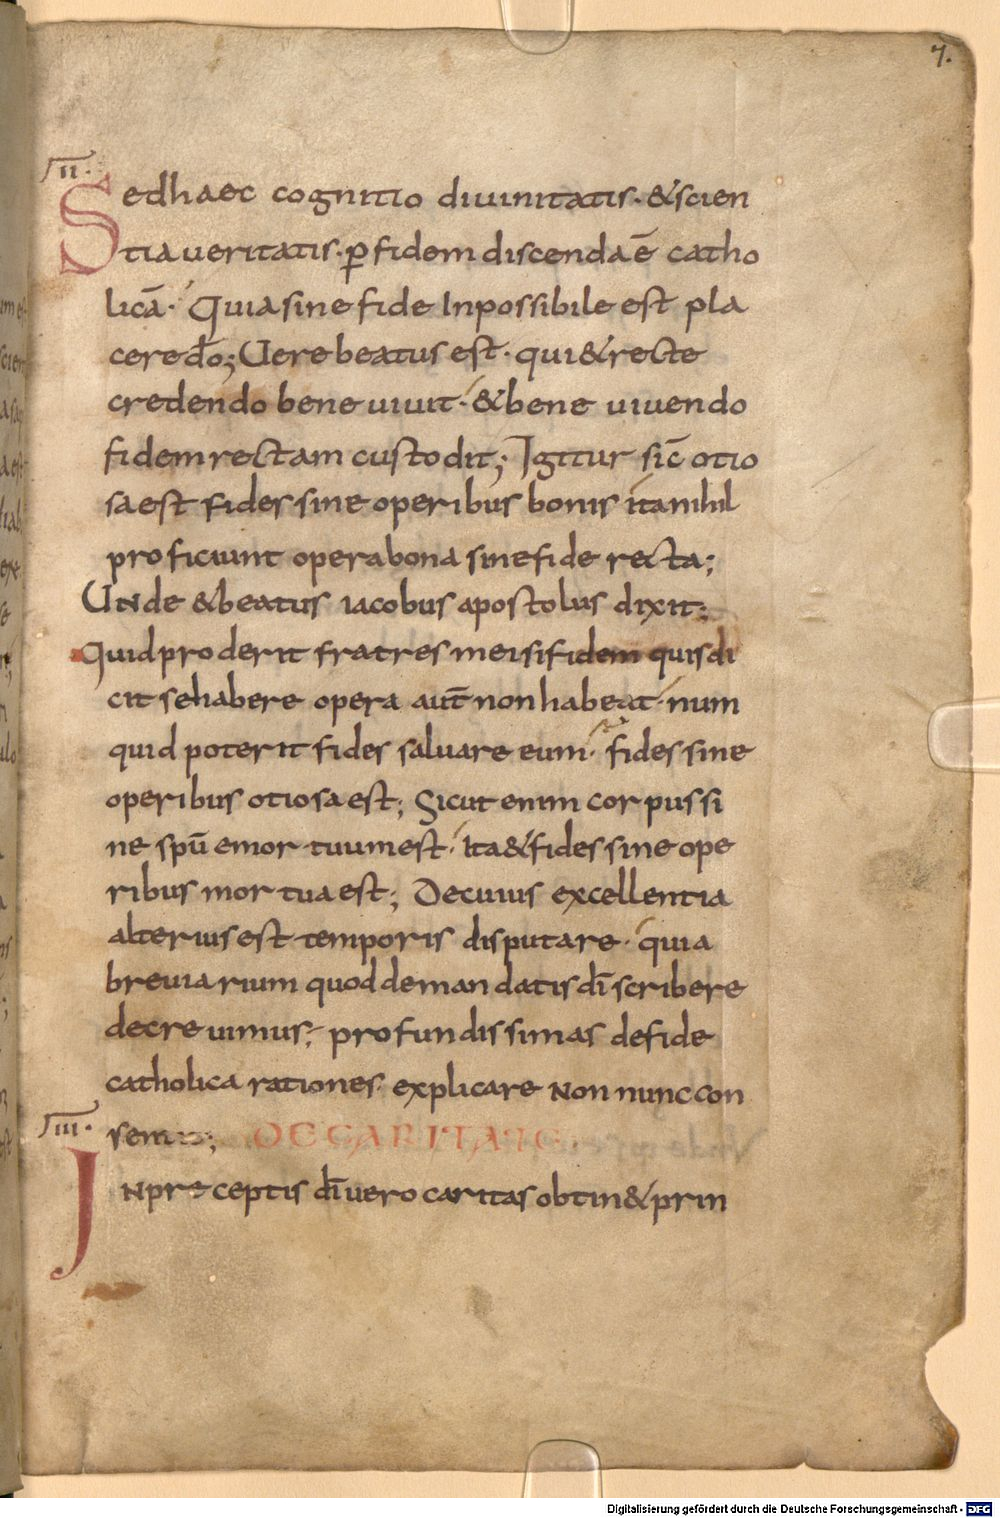 7.
II.
Sed haec cognitio diuinitatis · & scien
tia ueritatis · ꝑ fidem discenda ē catho
licā · Quia sine fide Inpossibile est pla
cere dō; Uere beatus est · qui & recte
credendo bene uiuit · & bene uiuendo
fidem rectam custodit; Igitur sic̄ otio
sa est fides sine operibus bonis ita nihil
proficiunt opera bona sine fide recta;
Unde & beatus iacobus apostolus dixit;
Quid proderit fratres mei si fidem quis di
cit se habere opera aut̄ non habeat · num
quid poterit fides saluare eum · fides sine
operibus otiosa est; Sicut enim corpus si
ne spū emortuum est · Ita & fides sine ope
ribus mortua est; De cuius excellentia
alterius est temporis disputare · quia
breuiarium quod de mandatis dī scribere
decreuimus; profundissimas de fide
catholica rationes explicare Non nunc con
III.
DE CARITATE ·
IN preceptis dī uero caritas obtin& prin
Digitalisierung gefördert durch die Deutsche Forschungsgemeinschaft - DFG